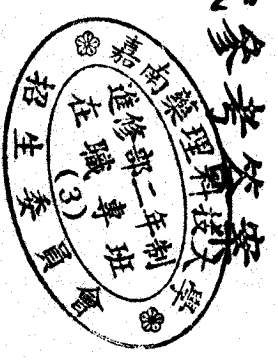 參考答案
嘉南藥理科技大學
進修部二年制
在職專班
(3)
招生委員會